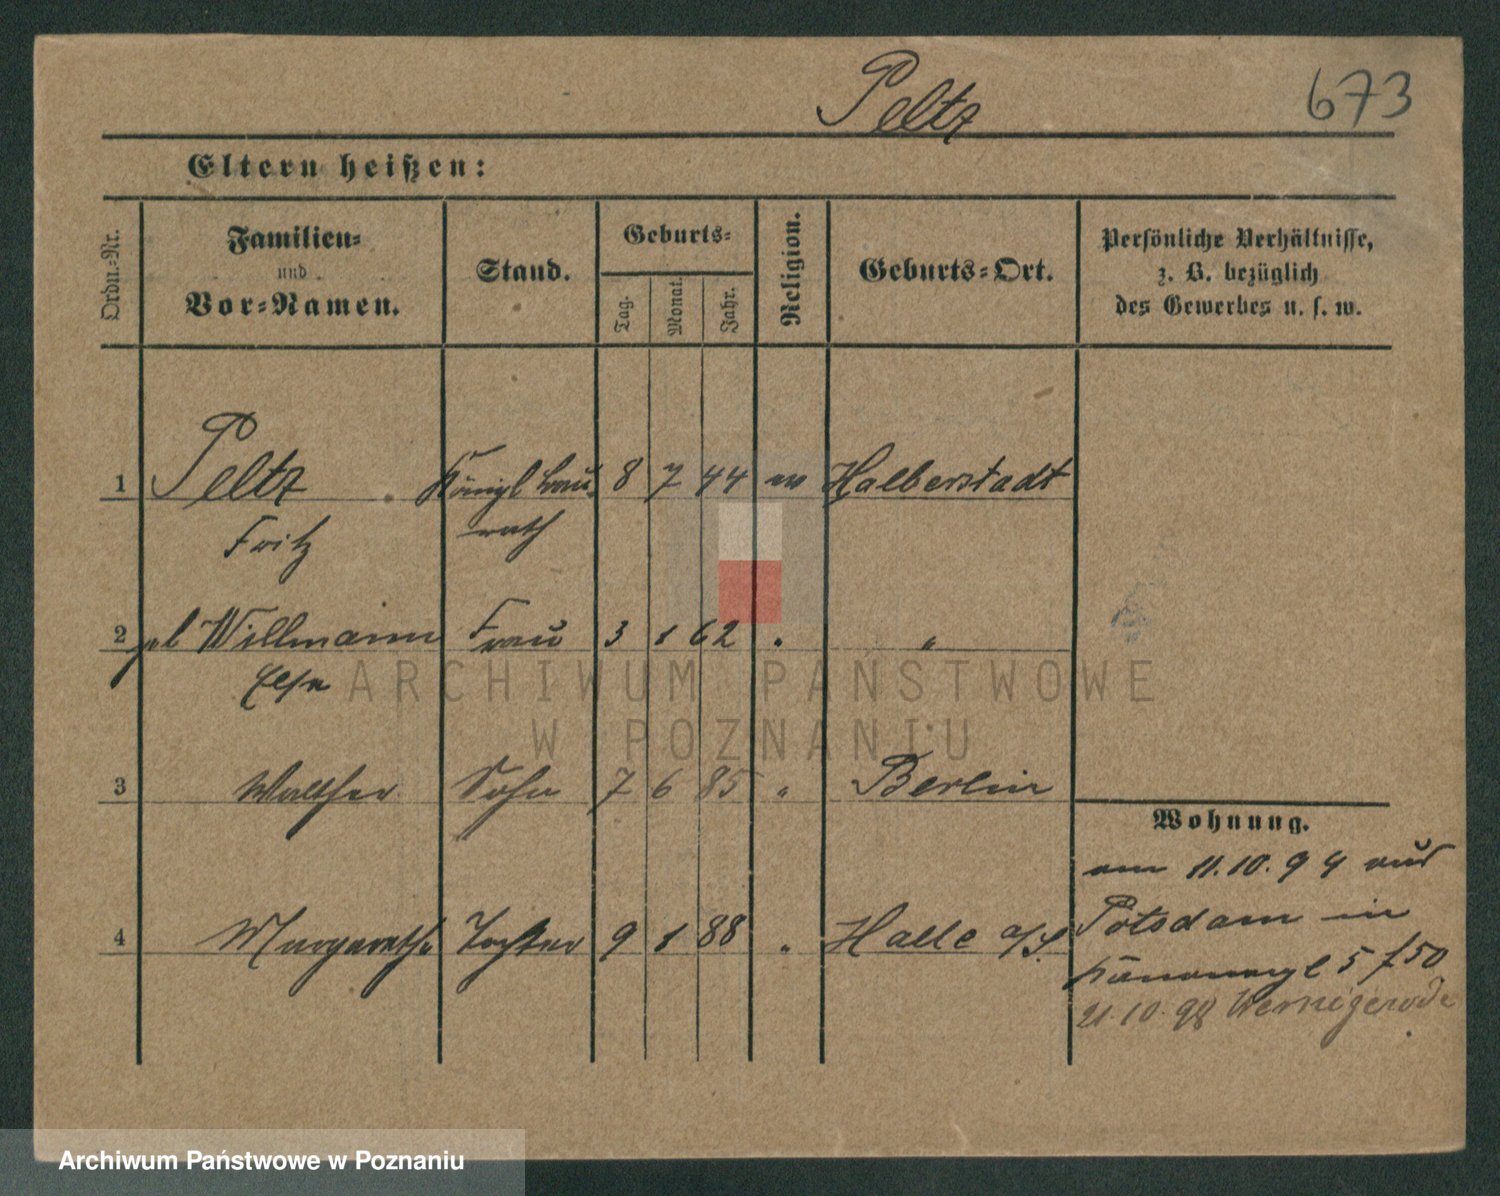 Peltz
673
Eltern heißen:
Ordn.-Nr.
Familien-
und
Vor-Namen.
Stand.
Geburts-
Tag.
Monat.
Jahr.
Religion.
Geburts-Ort.
Persönliche Verhältnisse,
z. B. bezüglich
des Gewerbes u. s. w.
1 Peltz Königl Bau- 8 7 44 ev Halberstadt
Fritz rath
2 geb Willmann Frau 3 1 62 " "
Else
ARCHIWUM PAŃSTWOWE
W POZNANIU
3 Walther Sohn 7 6 85 " Berlin
4 Margarethe Tochter 9 1 88 " Halle a/S.
Wohnung.
am 11.10.94 aus
Potsdam in
5 f 50
21.10.98 Wernigerode
Archiwum Państwowe w Poznaniu